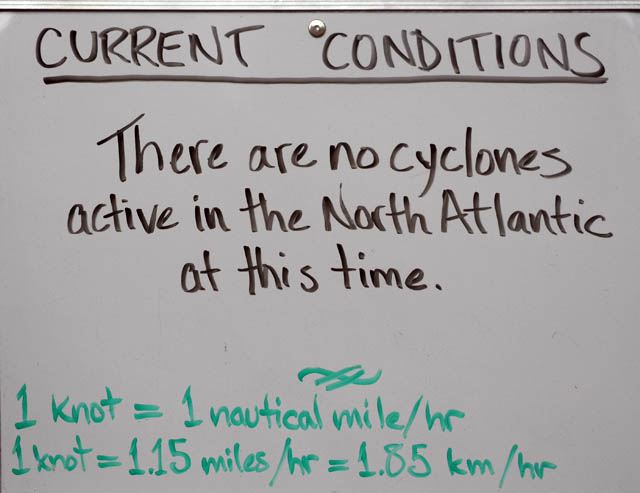 CURRENT CONDITIONS
There are no cyclones
active in the North Atlantic
at this time.
1 knot = 1 nautical mile/hr
1 knot = 1.15 miles/hr = 1.85 km/hr